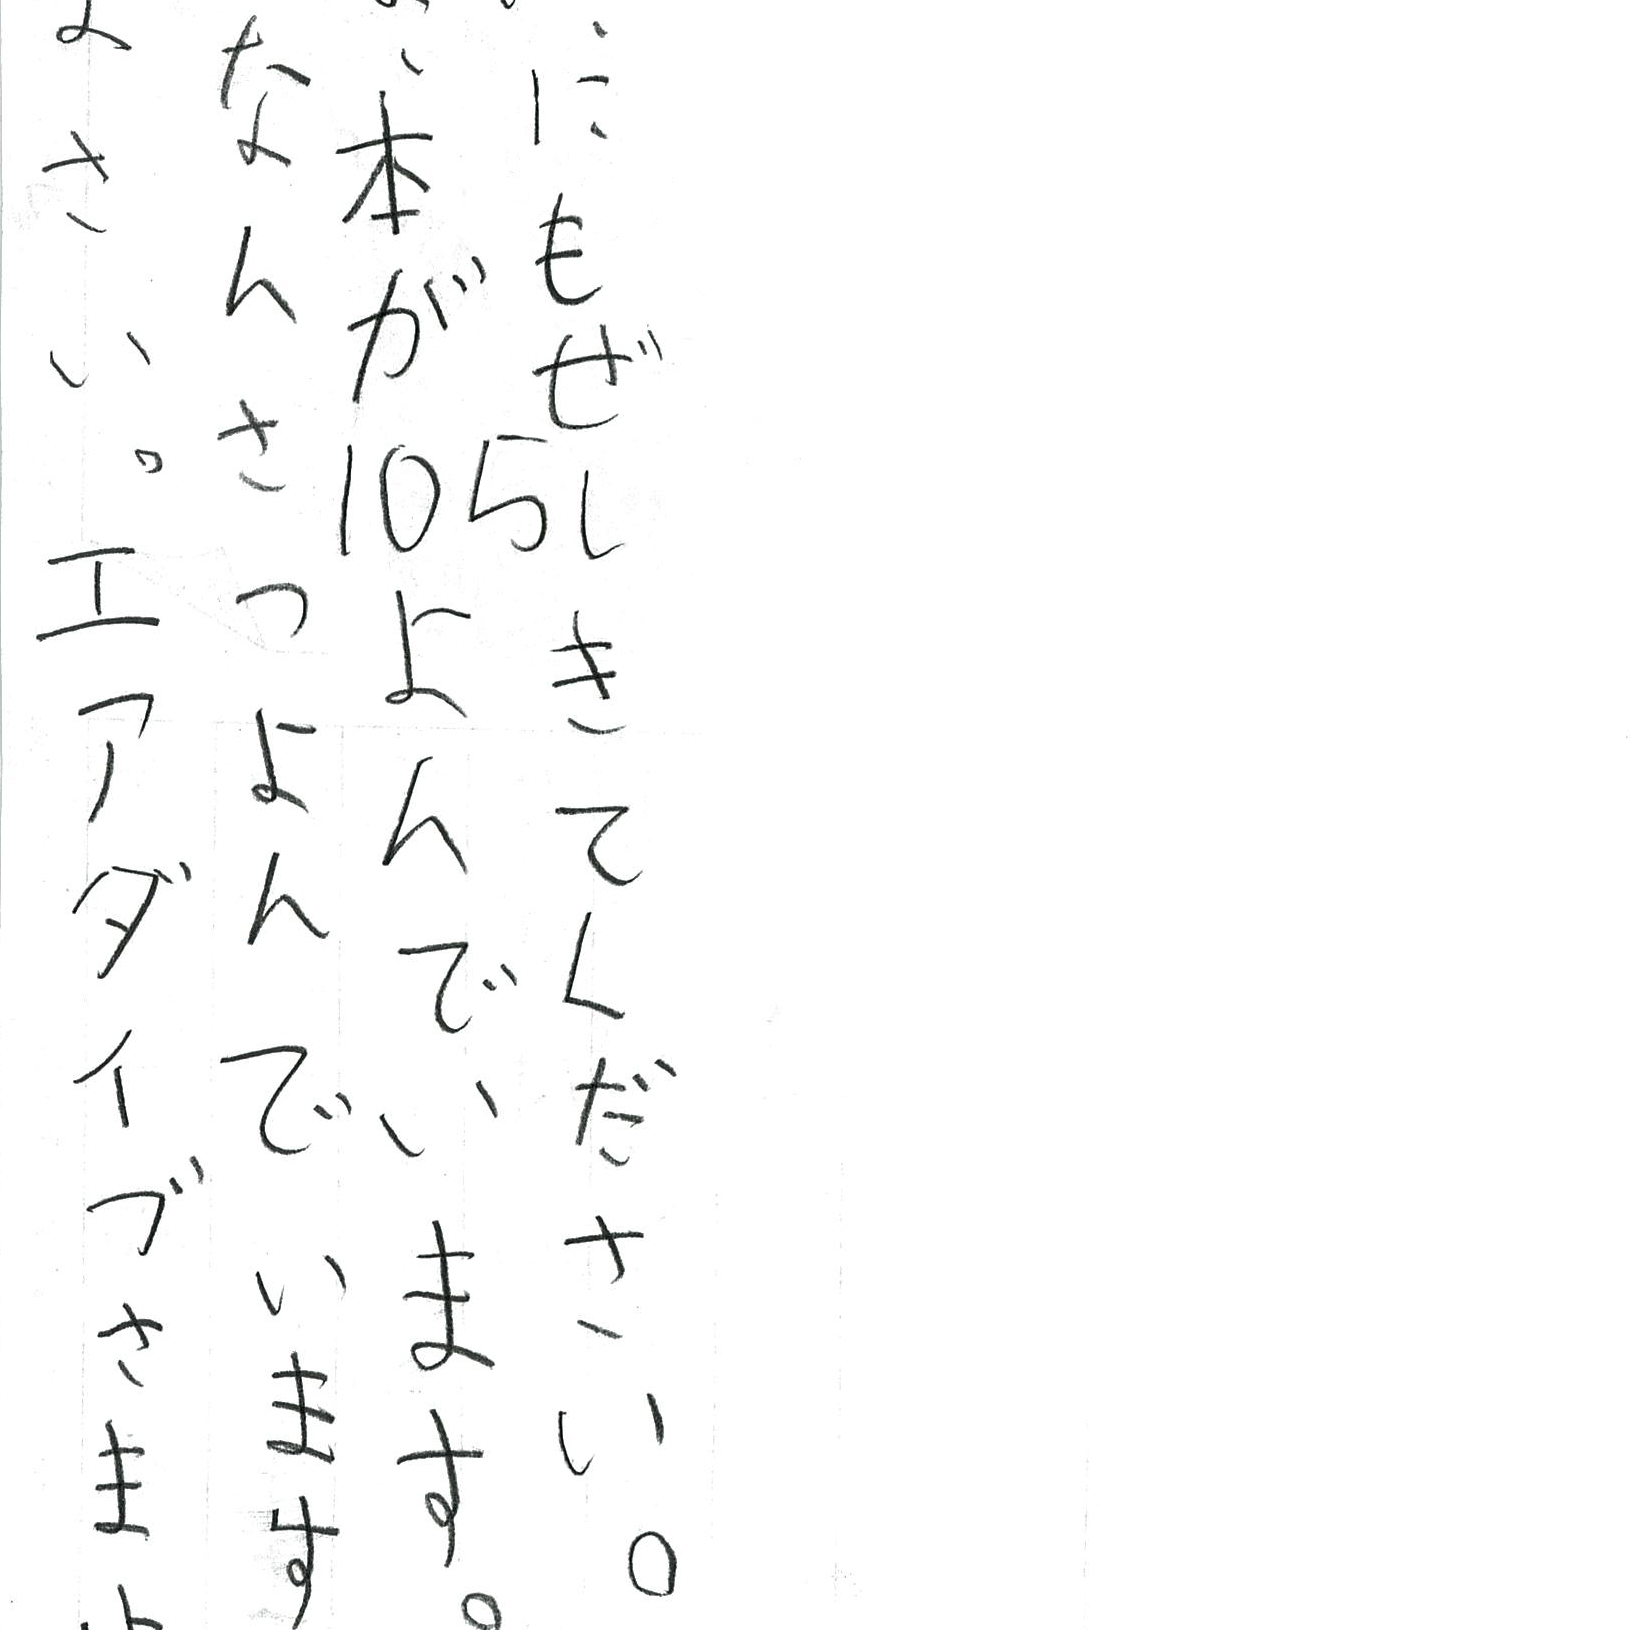 にもぜしきてください。
本が105よんでいます。
なんさつよんでいます
さい。エアダイブさま